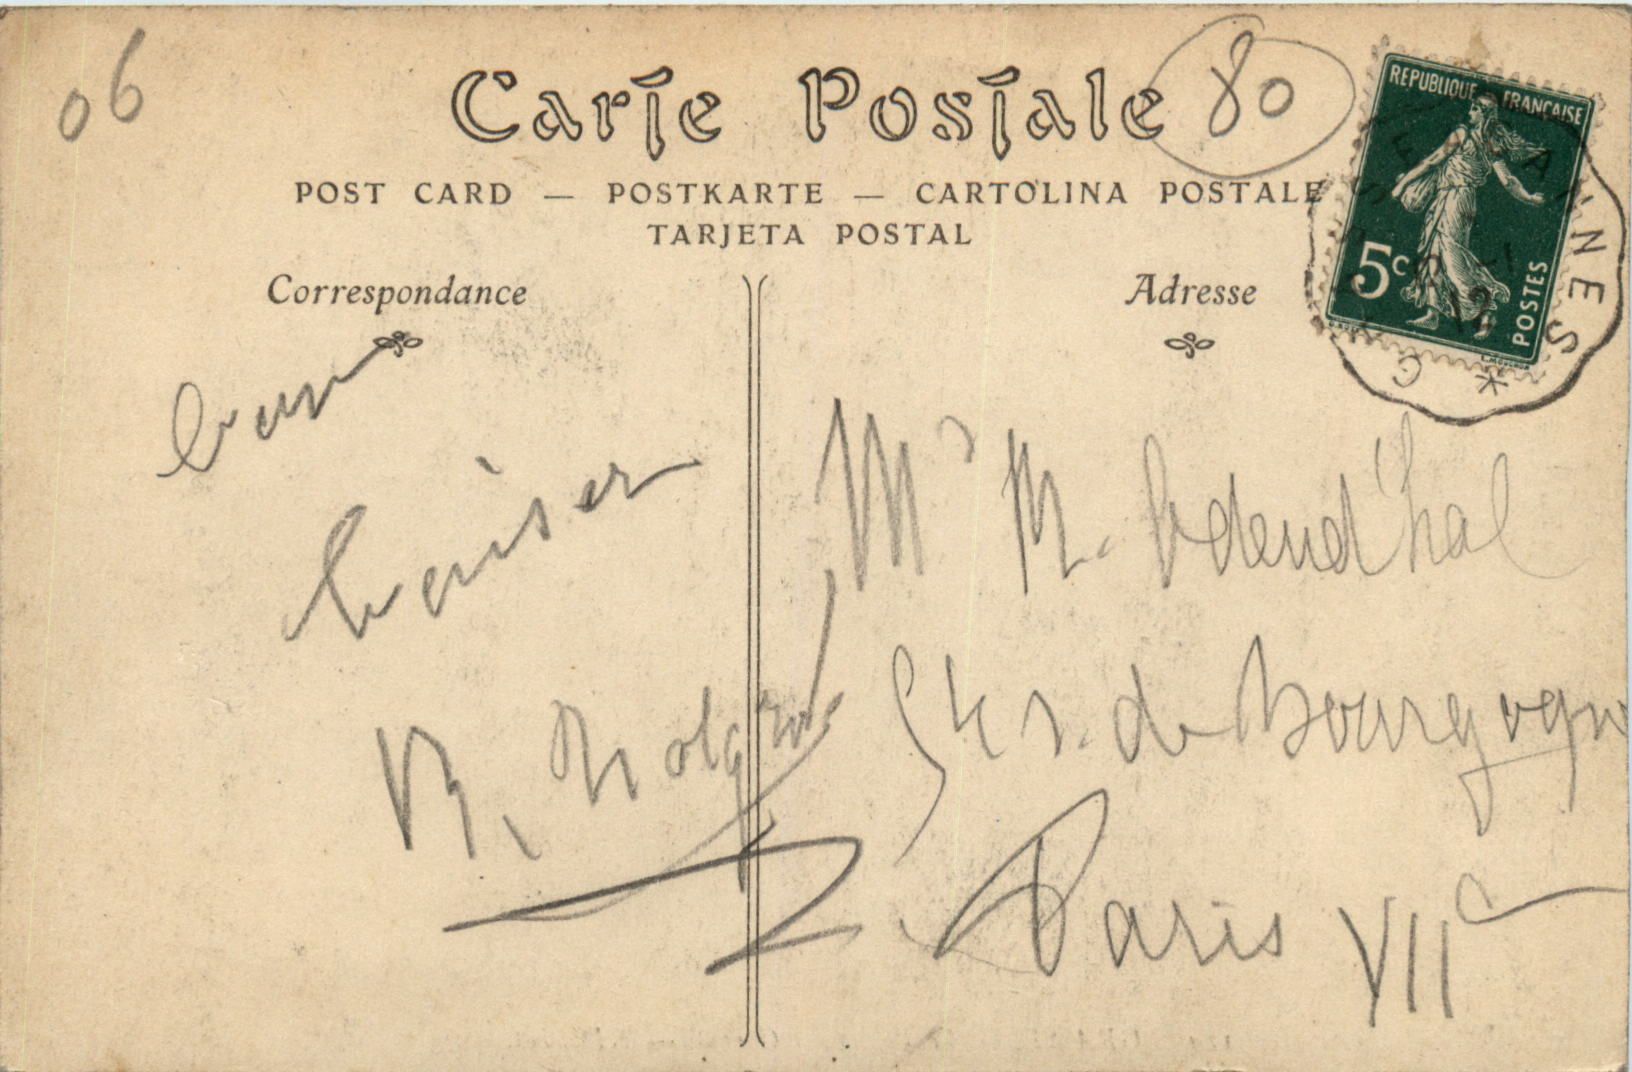 06
Carte Postale
80
POST CARD — POSTKARTE — CARTOLINA POSTALE
TARJETA POSTAL
REPUBLIQUE FRANÇAISE
5c
POSTES
12
Correspondance
Adresse
baiser
Mr M.
54 r. de Bourgogne
Paris VIIe